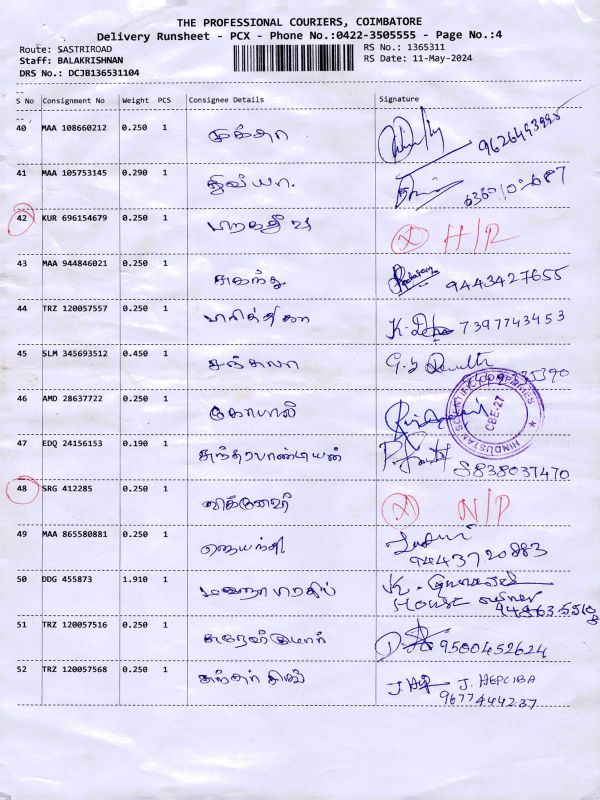 THE PROFESSIONAL COURIERS, COIMBATORE
Delivery Runsheet - PCX - Phone No.:0422-3505555 - Page No.:4
Route: SASTRIROAD RS No.: 1365311
Staff: BALAKRISHNAN RS Date: 11-May-2024
DRS No.: DCJB136531104
S No Consignment No Weight PCS Consignee Details Signature
40 MAA 108660212 0.250 1 முக்தா
41 MAA 105753145 0.290 1 திவ்யா.
42 KUR 696154679 0.250 1 H/R
43 MAA 944846021 0.250 1 சுகந்து 9443427655
44 TRZ 120057557 0.250 1 7397743453
45 SLM 345693512 0.450 1
46 AMD 28637722 0.250 1 கோபாலி
HINDUSTAN SCIENTIFIC COMPANIES CBE-27
47 EDQ 24156153 0.190 1 சுந்தரபாண்டியன் 8838037470
48 SRG 412285 0.250 1 N/P
49 MAA 865580881 0.250 1 ஜெயந்தி
9443720883
50 DDG 455873 1.910 1
House owner
51 TRZ 120057516 0.250 1 சுரேஷ்குமார் 9500452624
52 TRZ 120057568 0.250 1 சுந்தர் சிவ் J. HEPCIBA
9677444237